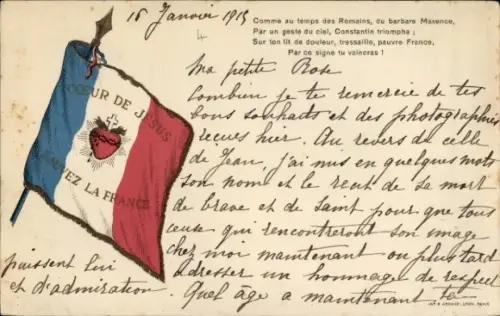 16 Janvier 1915
4
Comme au temps des Romains, du barbare Maxence,
Par un geste du ciel, Constantin triomphe ;
Sur ton lit de douleur, tressaille, pauvre France,
Par ce signe tu vaincras !
COEUR DE JESUS
SAUVEZ LA FRANCE
Ma petite Rose
Combien je te remercie de tes
bons souhaits et des photographies
reçues hier. Au revers de celle
de Jean, j'ai mis en quelques mots
son nom et le récit de sa mort
de brave et de saint pour que tous
ceux qui rencontreront son image
chez moi maintenant ou plus tard
puissent lui adresser un hommage de respect
et d'admiration. Quel âge a maintenant ta